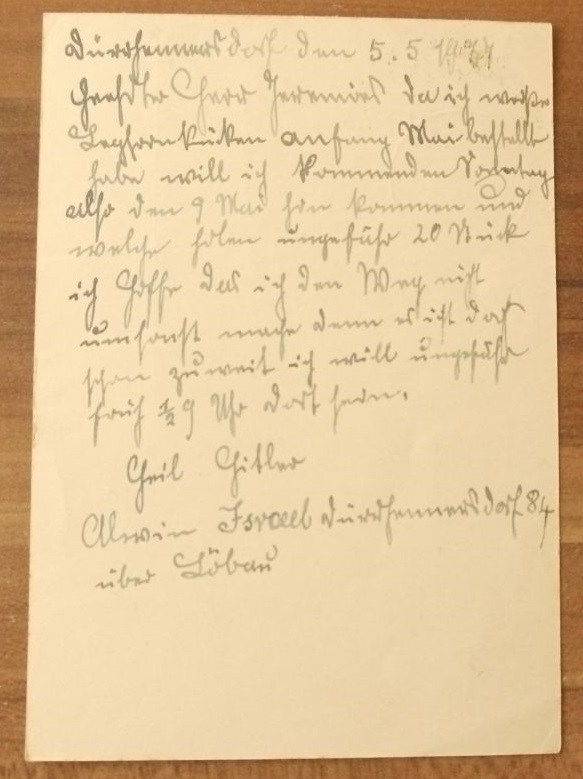 Dürrhennersdorf den 5. 5 1937
Geehrter Herr Jeremies da ich weiße
Leghornkücken anfang Mai bestellt
habe will ich kommenden Sonntag
also den 9 Mai hin kommen und
welche holen ungefähr 20 Stück
ich hoffe das ich den Weg nicht
umsonst mache denn es ist doch
schon zuweit ich will ungefähr
früh ½ 9 Uhr dort sein.
Heil Hitler
Alwin Israel Dürrhennersdorf 84
über Löbau